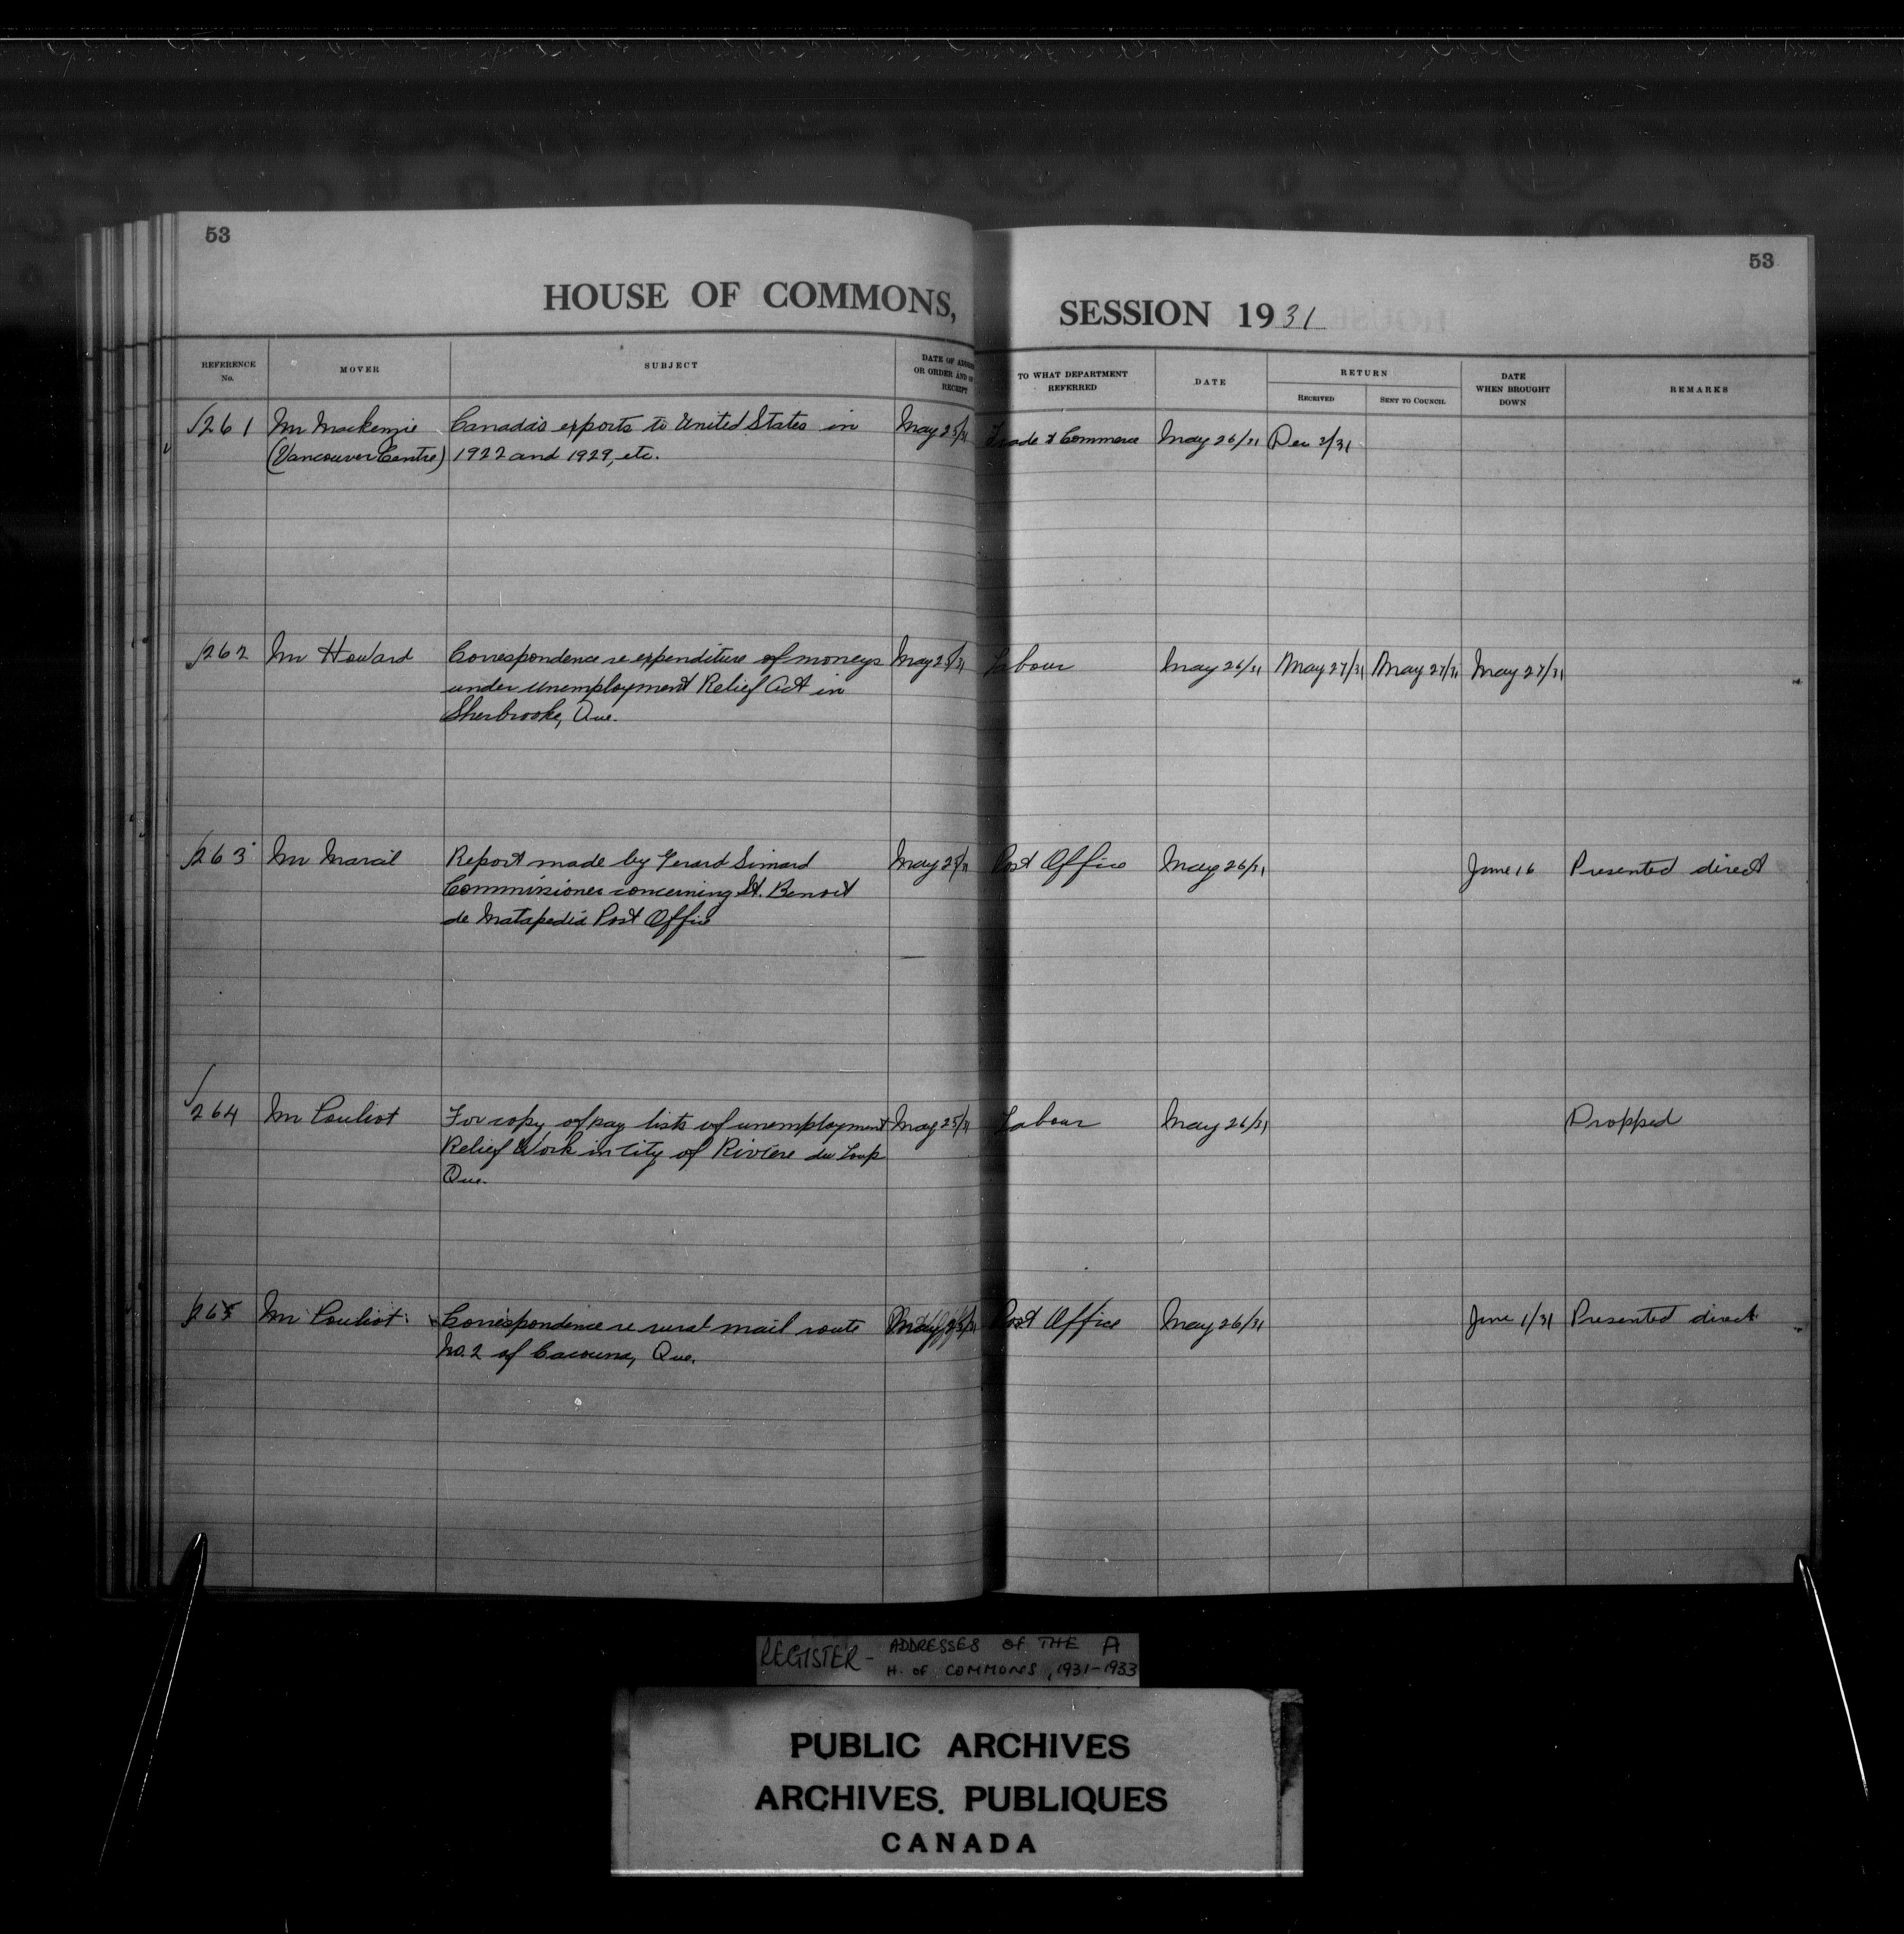 53
53
HOUSE OF COMMONS, SESSION 1931
REFERENCE No. MOVER SUBJECT DATE OF ADDRESS OR ORDER AND OF RECEIPT TO WHAT DEPARTMENT REFERRED DATE RETURN RECEIVED SENT TO COUNCIL DATE WHEN BROUGHT DOWN REMARKS
261 Mr Mackenzie Canada's exports to United States in May 25/31 Trade & Commerce May 26/31 Dec 2/31
(Vancouver Centre) 1922 and 1929, etc.
262 Mr Howard Correspondence re expenditure of moneys May 25/31 Labour May 26/31 May 27/31 May 27/31 May 27/31
under Unemployment Relief Act in
Sherbrooke, Que.
263 Mr Marcil Report made by Gerard Simard May 25/31 Post Office May 26/31 June 16 Presented direct
Commissioner concerning St. Benoit
de Matapedia Post Office
264 Mr Pouliot For copy of pay lists of unemployment May 25/31 Labour May 26/31 Dropped
Relief Work in city of Riviere du Loup
Que.
265 Mr Pouliot Correspondence re rural mail route May 25/31 Post Office May 26/31 June 1/31 Presented direct
No. 2 of Cacouna, Que.
REGISTER - ADDRESSES OF THE A
H. OF COMMONS, 1931-1933
PUBLIC ARCHIVES
ARCHIVES PUBLIQUES
CANADA